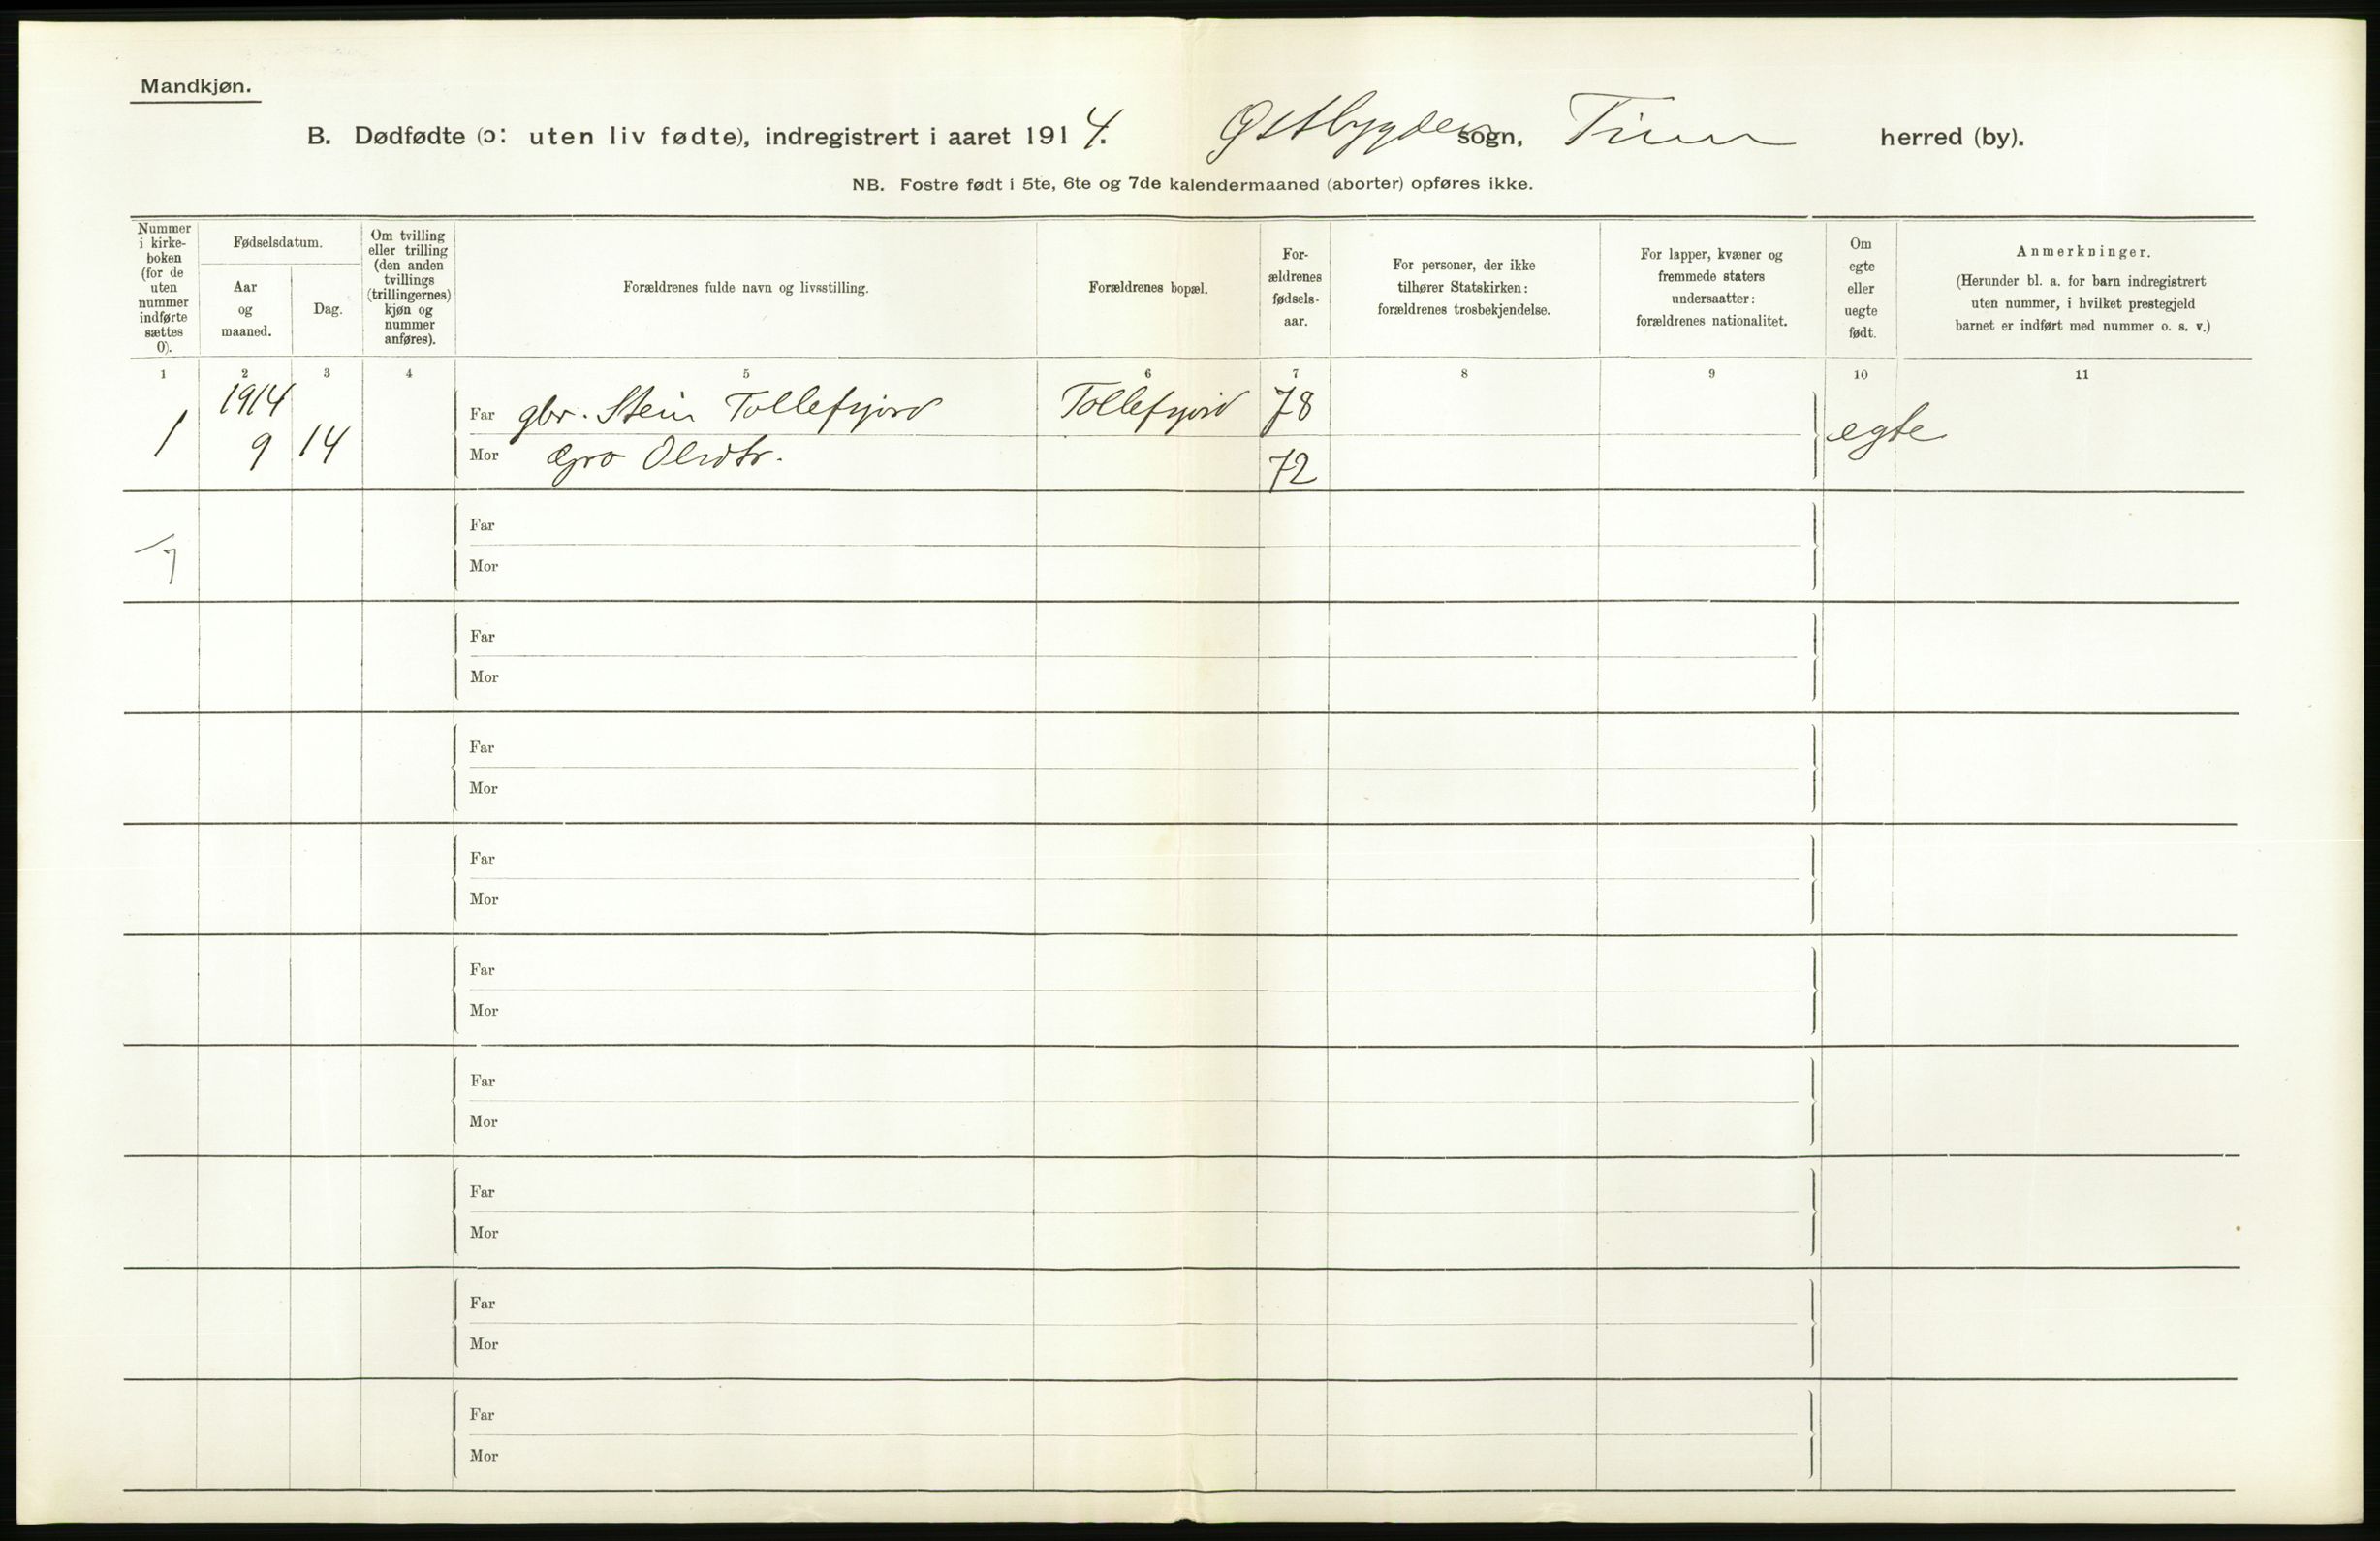 Mandkjøn.
B. Dødfødte (ɔ: uten liv fødte), indregistrert i aaret 1914. Østbygden sogn, Tinn herred (by).
NB. Fostre født i 5te, 6te og 7de kalendermaaned (aborter) opføres ikke.
Nummer
i kirke-
boken
(for de
uten
nummer
indførte
sættes
0).
Fødselsdatum.
Aar
og
maaned.
Dag.
Om tvilling
eller trilling
(den anden
tvillings
(trillingernes)
kjøn og
nummer
anføres).
Forældrenes fulde navn og livsstilling.
Forældrenes bopæl.
For-
ældrenes
fødsels-
aar.
For personer, der ikke
tilhører Statskirken:
forældrenes trosbekjendelse.
For lapper, kvæner og
fremmede staters
undersaatter:
forældrenes nationalitet.
Om
egte
eller
uegte
født.
Anmerkninger.
(Herunder bl. a. for barn indregistrert
uten nummer, i hvilket prestegjeld
barnet er indført med nummer o. s. v.)
1 2 3 4 5 6 7 8 9 10 11
1914
Far gbr. Stein Tollefsjord Tollefsjord 78
1 9 14 egte
Mor Gro Olsdtr. 72
Far
1
Mor
Far
Mor
Far
Mor
Far
Mor
Far
Mor
Far
Mor
Far
Mor
Far
Mor
Far
Mor